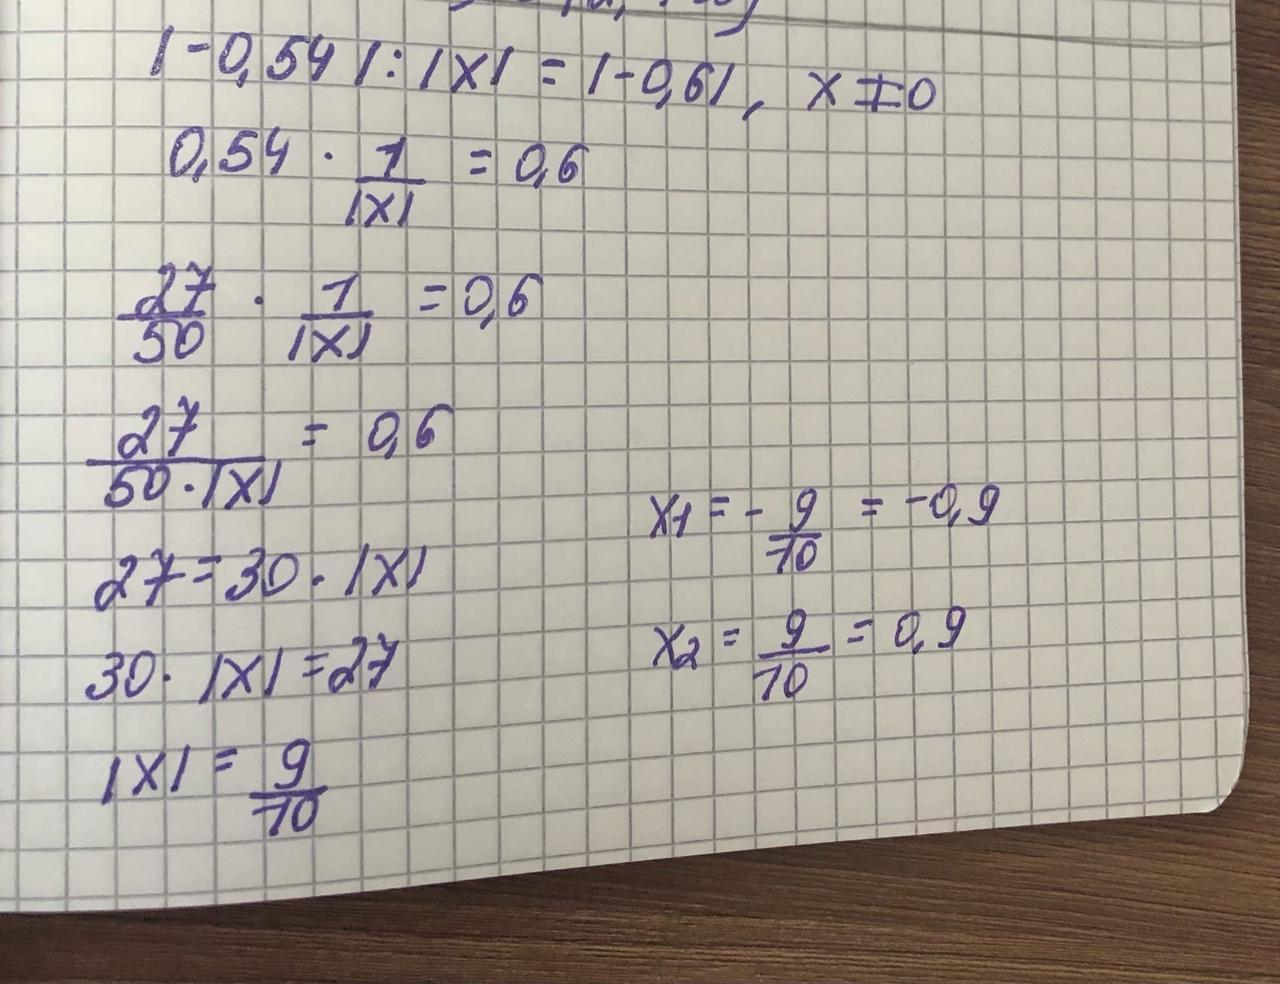 |-0,54|:|x|=|-0,6|, x≠0
0,54 · 1/|x| = 0,6
27/50 · 1/|x| = 0,6
27/(50·|x|) = 0,6
27=30·|x|
30·|x|=27
|x| = 9/10
x1 = - 9/10 = -0,9
x2 = 9/10 = 0,9